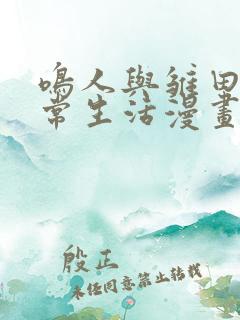 鳴人與雛田
常生活漫畫
殷正
未任同意禁止转載